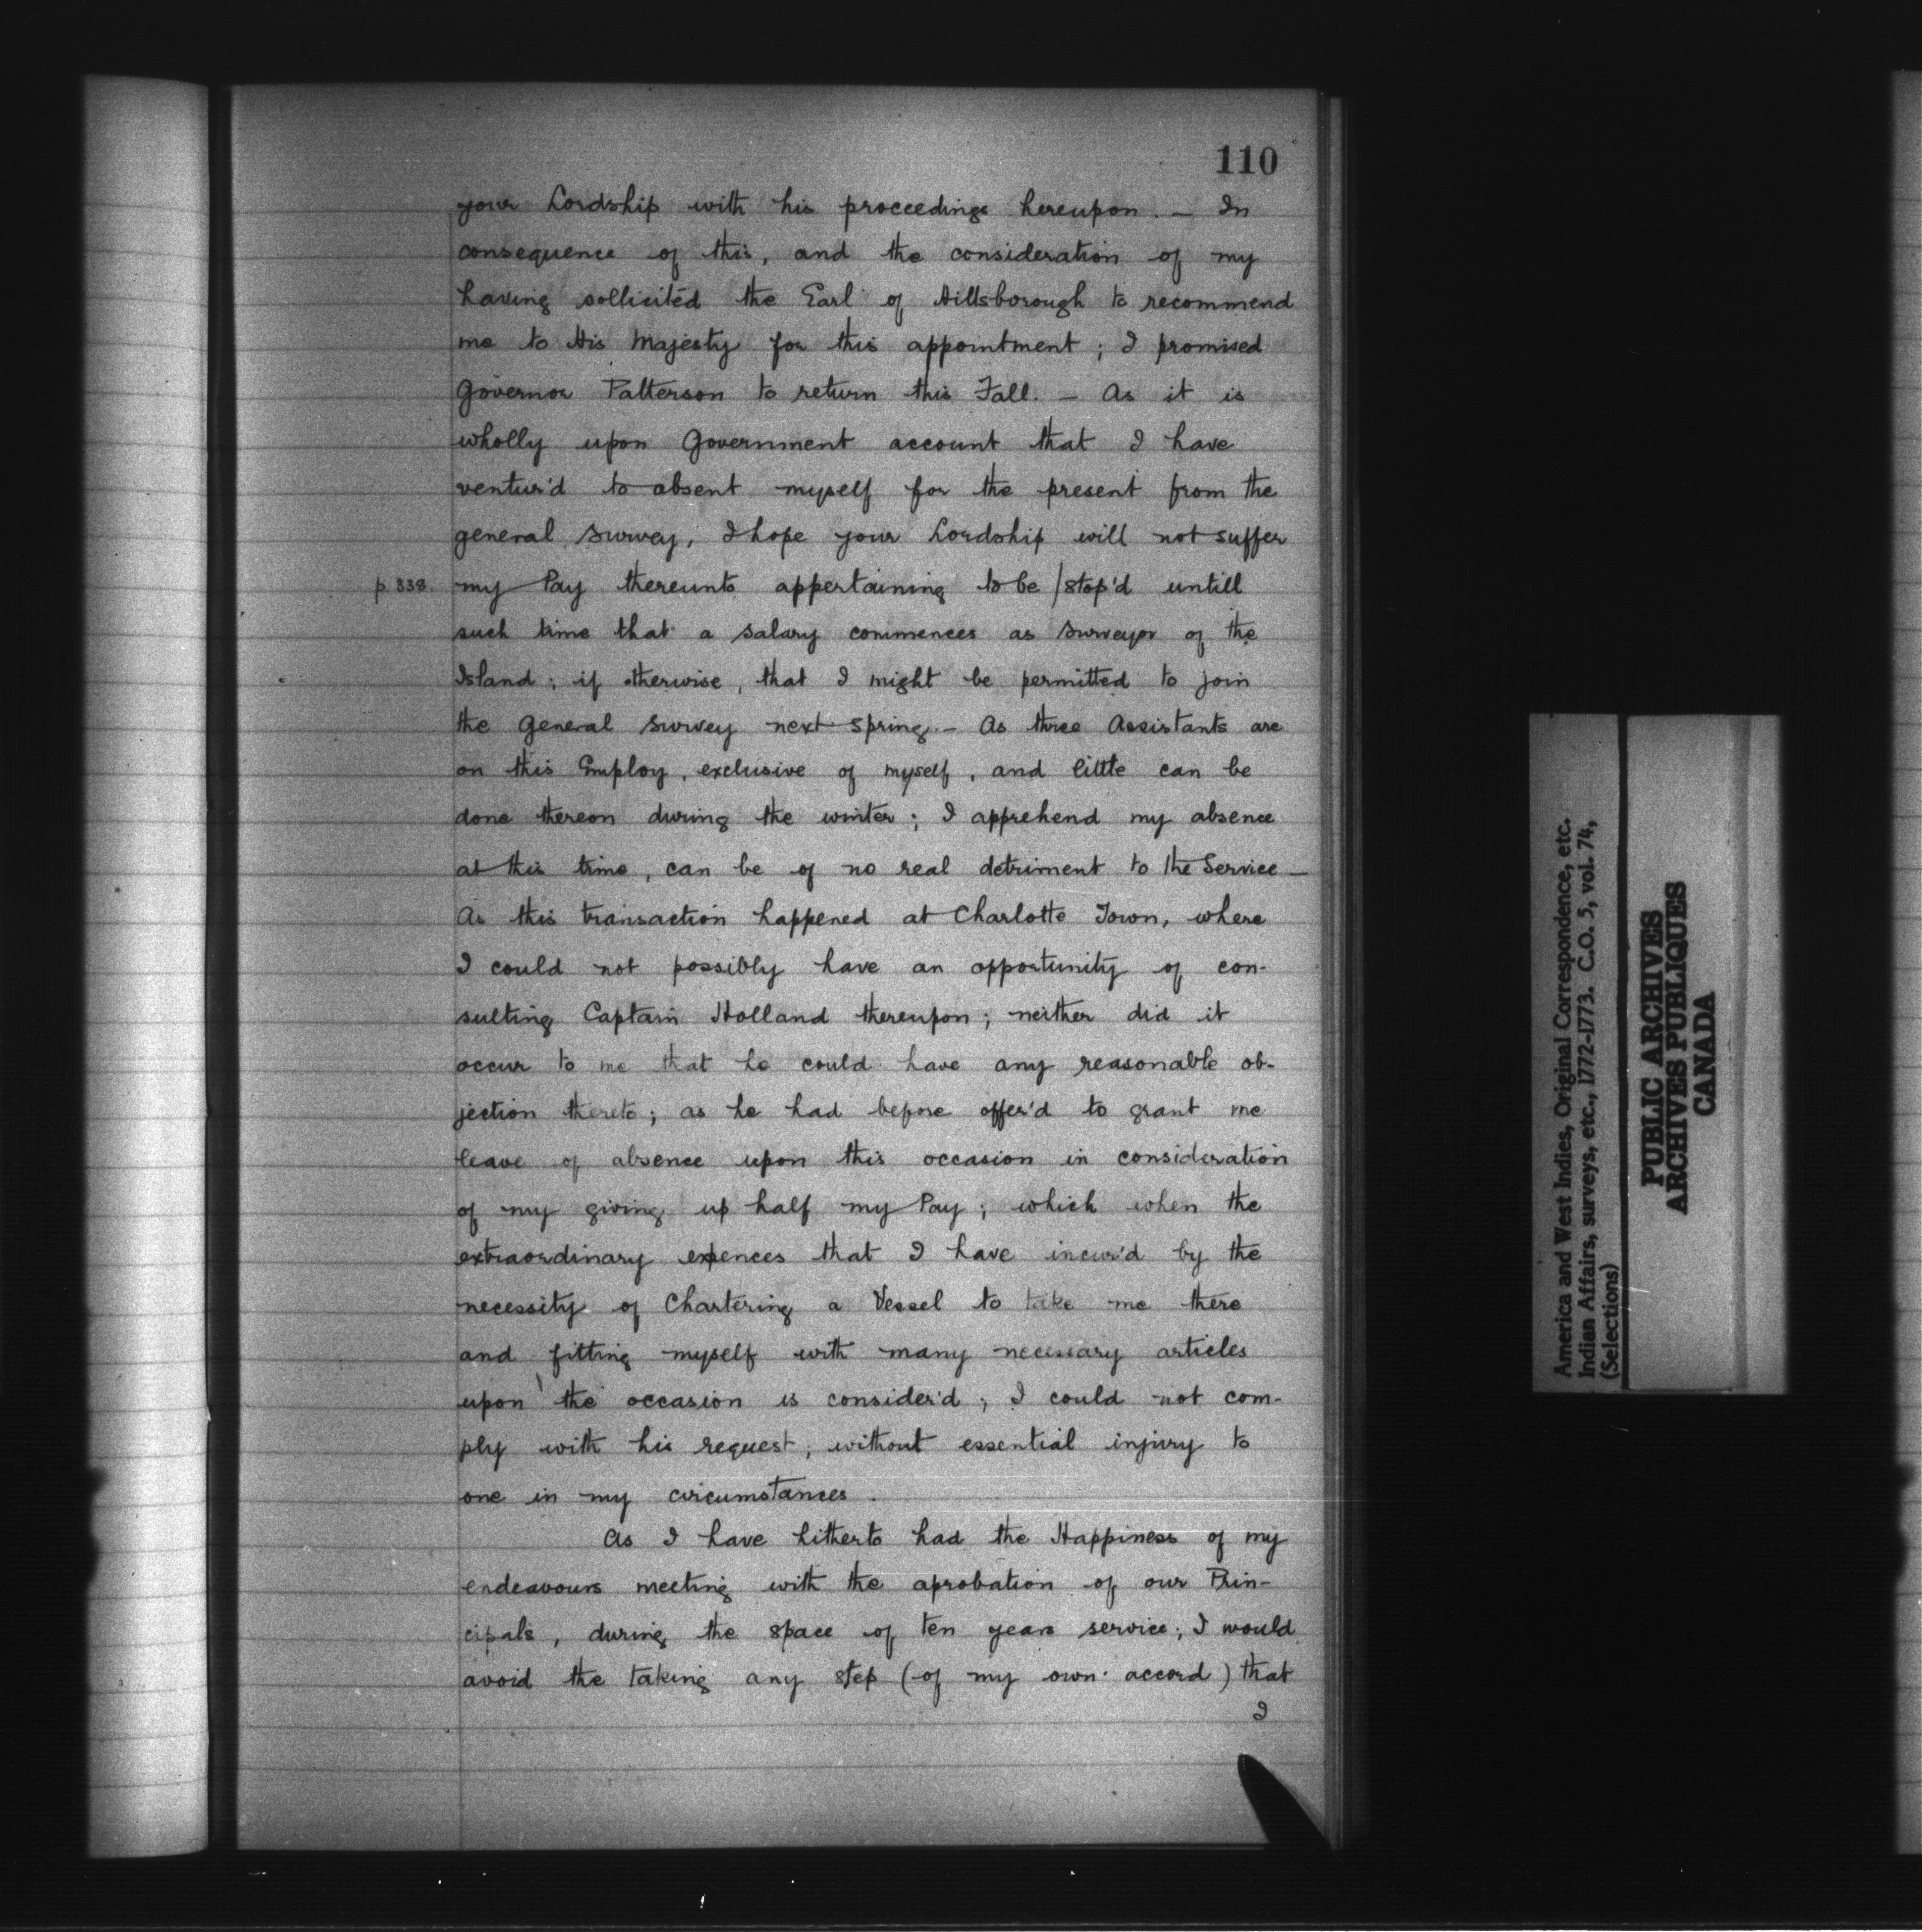 110
your Lordship with his proceedings hereupon. — In
consequence of this, and the consideration of my
having sollicited the Earl of Hillsborough to recommend
me to His Majesty for this appointment; I promised
Governor Patterson to return this Fall. — As it is
wholly upon Government account that I have
ventur'd to absent myself for the present from the
general survey, I hope your Lordship will not suffer
p 338. my Pay thereunto appertaining to be /stop'd untill
such time that a salary commences as surveyor of the
Island; if otherwise, that I might be permitted to join
the General survey next spring. — As three Assistants are
on this Employ, exclusive of myself, and little can be
done thereon during the winter; I apprehend my absence
at this time, can be of no real detriment to the Service —
As this transaction happened at Charlotte Town, where
I could not possibly have an opportunity of con-
sulting Captain Holland thereupon; neither did it
occur to me that he could have any reasonable ob-
jection thereto; as he had before offer'd to grant me
leave of absence upon this occasion in consideration
of my giving up half my Pay; which when the
extraordinary expences that I have incur'd by the
necessity of Chartering a Vessel to take me there
and fitting myself with many necessary articles
upon the occasion is consider'd; I could not com-
ply with his request, without essential injury to
one in my circumstances.
As I have hitherto had the Happiness of my
endeavours meeting with the aprobation of our Prin-
cipals, during the space of ten years service; I would
avoid the taking any step (of my own accord) that
I
America and West Indies, Original Correspondence, etc.
Indian Affairs, surveys, etc., 1772-1773. C.O. 5, vol. 74,
(Selections)
PUBLIC ARCHIVES
ARCHIVES PUBLIQUES
CANADA